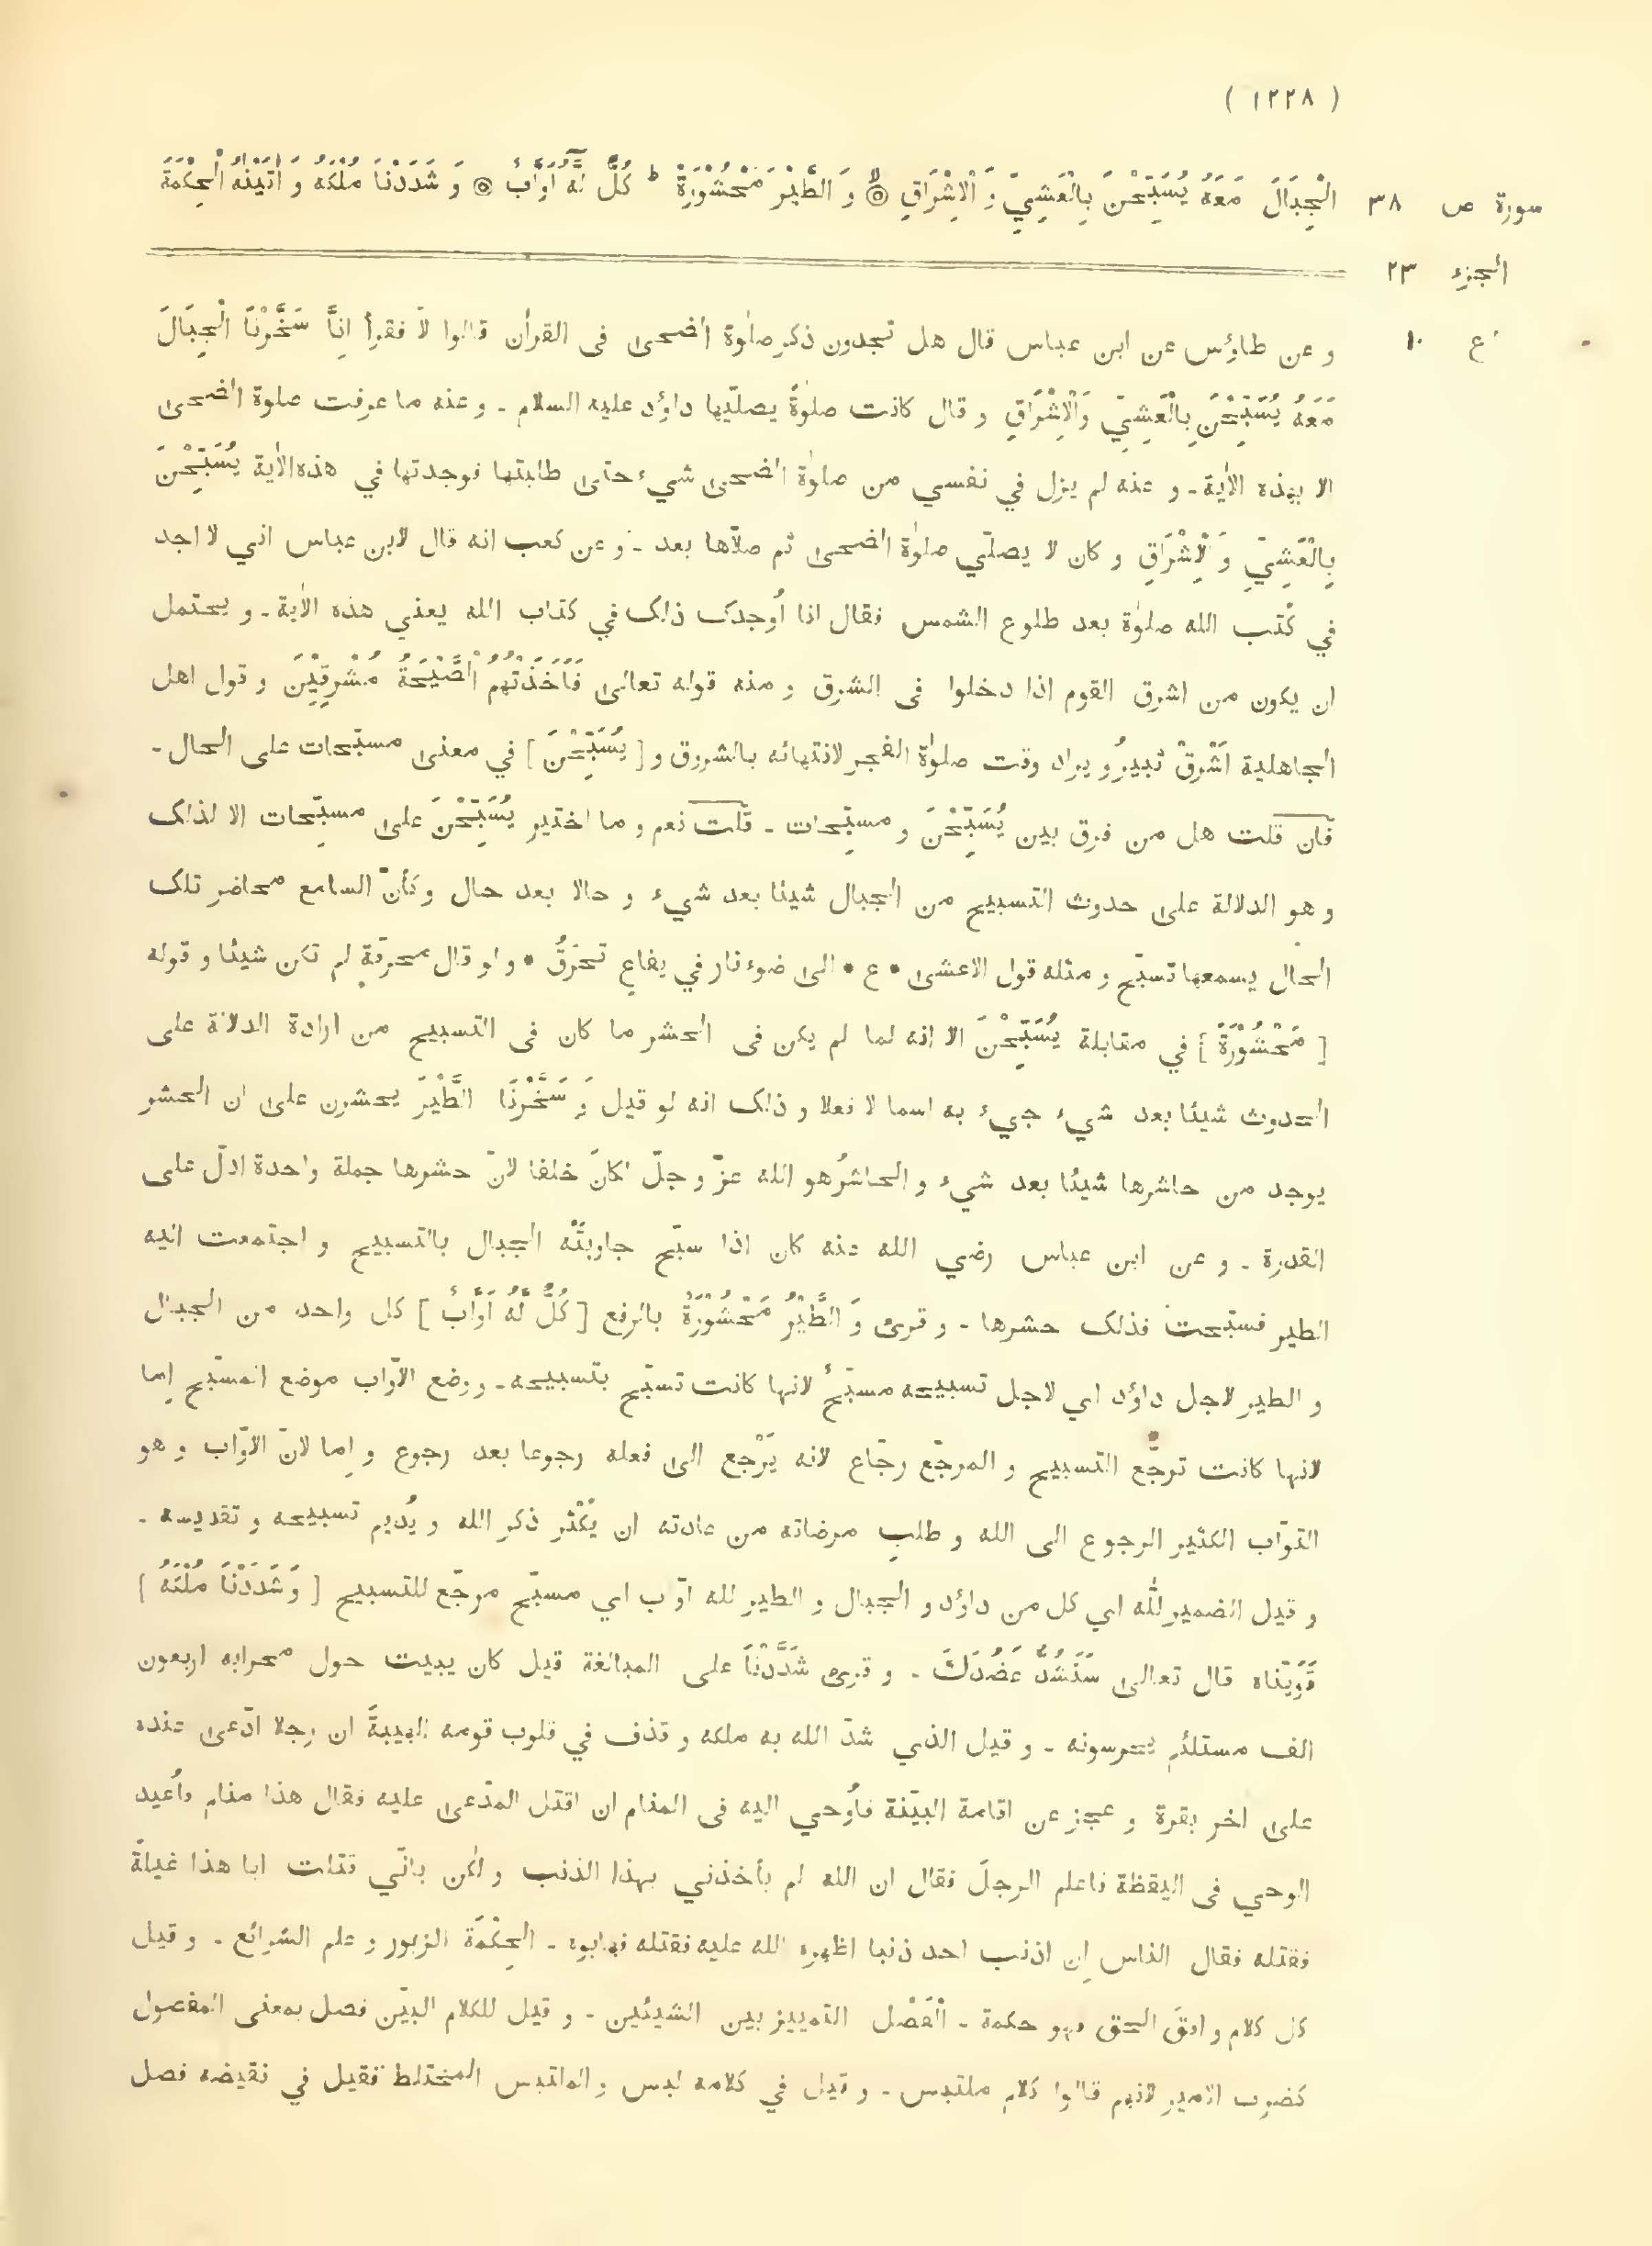 ( ١٢٢٨ )
سورة ص ٣٨
الْجِبَالَ مَعَهُ يُسَبِّحْنَ بِالْعَشِيِّ وَ الْاِشْرَاقِ ۙ وَ الطَّيْرَ مَحْشُوْرَةً ط كُلٌّ لَّهٗٓ اَوَّابٌ ۞ وَ شَدَدْنَا مُلْكَهُ وَ اٰتَيْنٰهُ الْحِكْمَةَ
الجزء ٢٣
ع ١٠
و عن طاؤس عن ابن عباس قال هل تجدون ذكر صلٰوة الضحى فى القرأن قالوا لا فقرأ اِنَّا سَخَّرْنَا الْجِبَالَ
مَعَهُ يُسَبِّحْنَ بِالْعَشِيِّ وَالْاِشْرَاقِ و قال كانت صلٰوةً يصلّيها داؤد عليه السلام ـ و عنه ما عرفت صلوة الضحى
الا بهذه الاٰية ـ و عنه لم يزل في نفسي من صلٰوة الضحى شيء حتى طلبتها فوجدتها في هذه الاٰية يُسَبِّحْنَ
بِالْعَشِيِّ وَ الْاِشْرَاقِ و كان لا يصلّي صلٰوة الضحى ثم صلّاها بعد ـ و عن كعب انه قال لابن عباس اني لا اجد
في كُتب الله صلٰوة بعد طلوع الشمس فقال انا اُوجدك ذلك في كتاب الله يعني هذه الاٰية ـ و يحتمل
ان يكون من اشرق القوم اذا دخلوا فى الشرق و منه قوله تعالى فَاَخَذَتْهُمُ الصَّيْحَةُ مُشْرِقِيْنَ و قول اهل
الجاهلية اَشْرِقْ ثبيرُ و يراد وقت صلٰوة الفجر لانتهائه بالشروق و [ يُسَبِّحْنَ ] في معنى مسبّحات على الحال ـ
فان قلت هل من فرق بين يُسَبِّحْنَ و مسبّحات ـ قلت نعم و ما اختير يُسَبِّحْنَ على مسبّحات الا لذلك
و هو الدلالة على حدوث التسبيح من الجبال شيئا بعد شيء و حالا بعد حال و كأنّ السامع محاضر تلك
الحال يسمعها تسبّح و مثله قول الاعشى • ع • الى ضوء نار في يفاعٍ تحرّقُ • و لو قال محرقةٍ لم تكن شيئا و قوله
[ مَحْشُوْرَةً ] في مقابلة يُسَبِّحْنَ الا انه لما لم يكن فى الحشر ما كان فى التسبيح من ارادة الدلالة على
الحدوث شيئا بعد شيء جيء به اسما لا فعلا و ذلك انه لو قيل وَ سَخَّرْنَا الطَّيْرَ يحشرن على ان الحشر
يوجد من حاشرها شيئا بعد شيء و الحاشرُ هو الله عزّ و جلّ لكان خلفا لانّ حشرها جملة واحدة ادلّ على
القدرة ـ و عن ابن عباس رضي الله عنه كان اذا سبّح جاوبتْه الجبال بالتسبيح و اجتمعت اليه
الطير فسبّحت فذلك حشرها ـ و قرئ وَ الطَّيْرُ مَحْشُوْرَةٌ بالرفع [ كُلٌّ لَّهٗ اَوَّابٌ ] كل واحد من الجبال
و الطير لاجل داؤد اي لاجل تسبيحه مسبّحٌ لانها كانت تسبّح بتسبيحه ـ و وضع الاوّاب موضع المسبّح اِما
لانها كانت ترجّع التسبيح و المرجّع رجّاع لانه يَرْجع الى فعله رجوعا بعد رجوع و اِما لانّ الاوّاب و هو
التوّاب الكثير الرجوع الى الله و طلبِ مرضاته من عادته ان يُكْثر ذكر الله و يُديم تسبيحه و تقديسه ـ
و قيل الضمير لله اي كل من داؤد و الجبال و الطير لله اوّاب اي مسبّح مرجّع للتسبيح [ وَ شَدَدْنَا مُلْكَهُ ]
قَوَّيْناه قال تعالى سَنَشُدُّ عَضُدَكَ ـ و قرئ شَدَّدْنَا على المبالغة قيل كان يبيت حول محرابه اربعون
الف مستلئم يحرسونه ـ و قيل الذي شدّ الله به ملكه و قذف في قلوب قومه الهيبةَ ان رجلا ادّعى عنده
على اٰخر بقرة و عجز عن اقامة البيّنة فاُوحي اليه فى المنام ان اقتل المدّعى عليه فقال هذا منام فاُعيد
الوحي فى اليقظة فاعلم الرجلَ فقال ان الله لم يأخذني بهذا الذنب و لكن بانّي قتلت ابا هذا غيلةً
فقتله فقال الناس اِن اذنب احد ذنبا اظهره الله عليه فقتله فهابوه ـ الْحِكْمَةَ الزبور و علم الشرائع ـ و قيل
كل كلام وافق الحق فهو حكمة ـ الْفَصْل التمييز بين الشيئين ـ و قيل للكلام البيّن فصل بمعنى المفصول
كضرب الامير لانهم قالوا كلام ملتبس ـ و قيل في كلامه لبس و الملتبس المختلط فقيل في نقيضه فصل